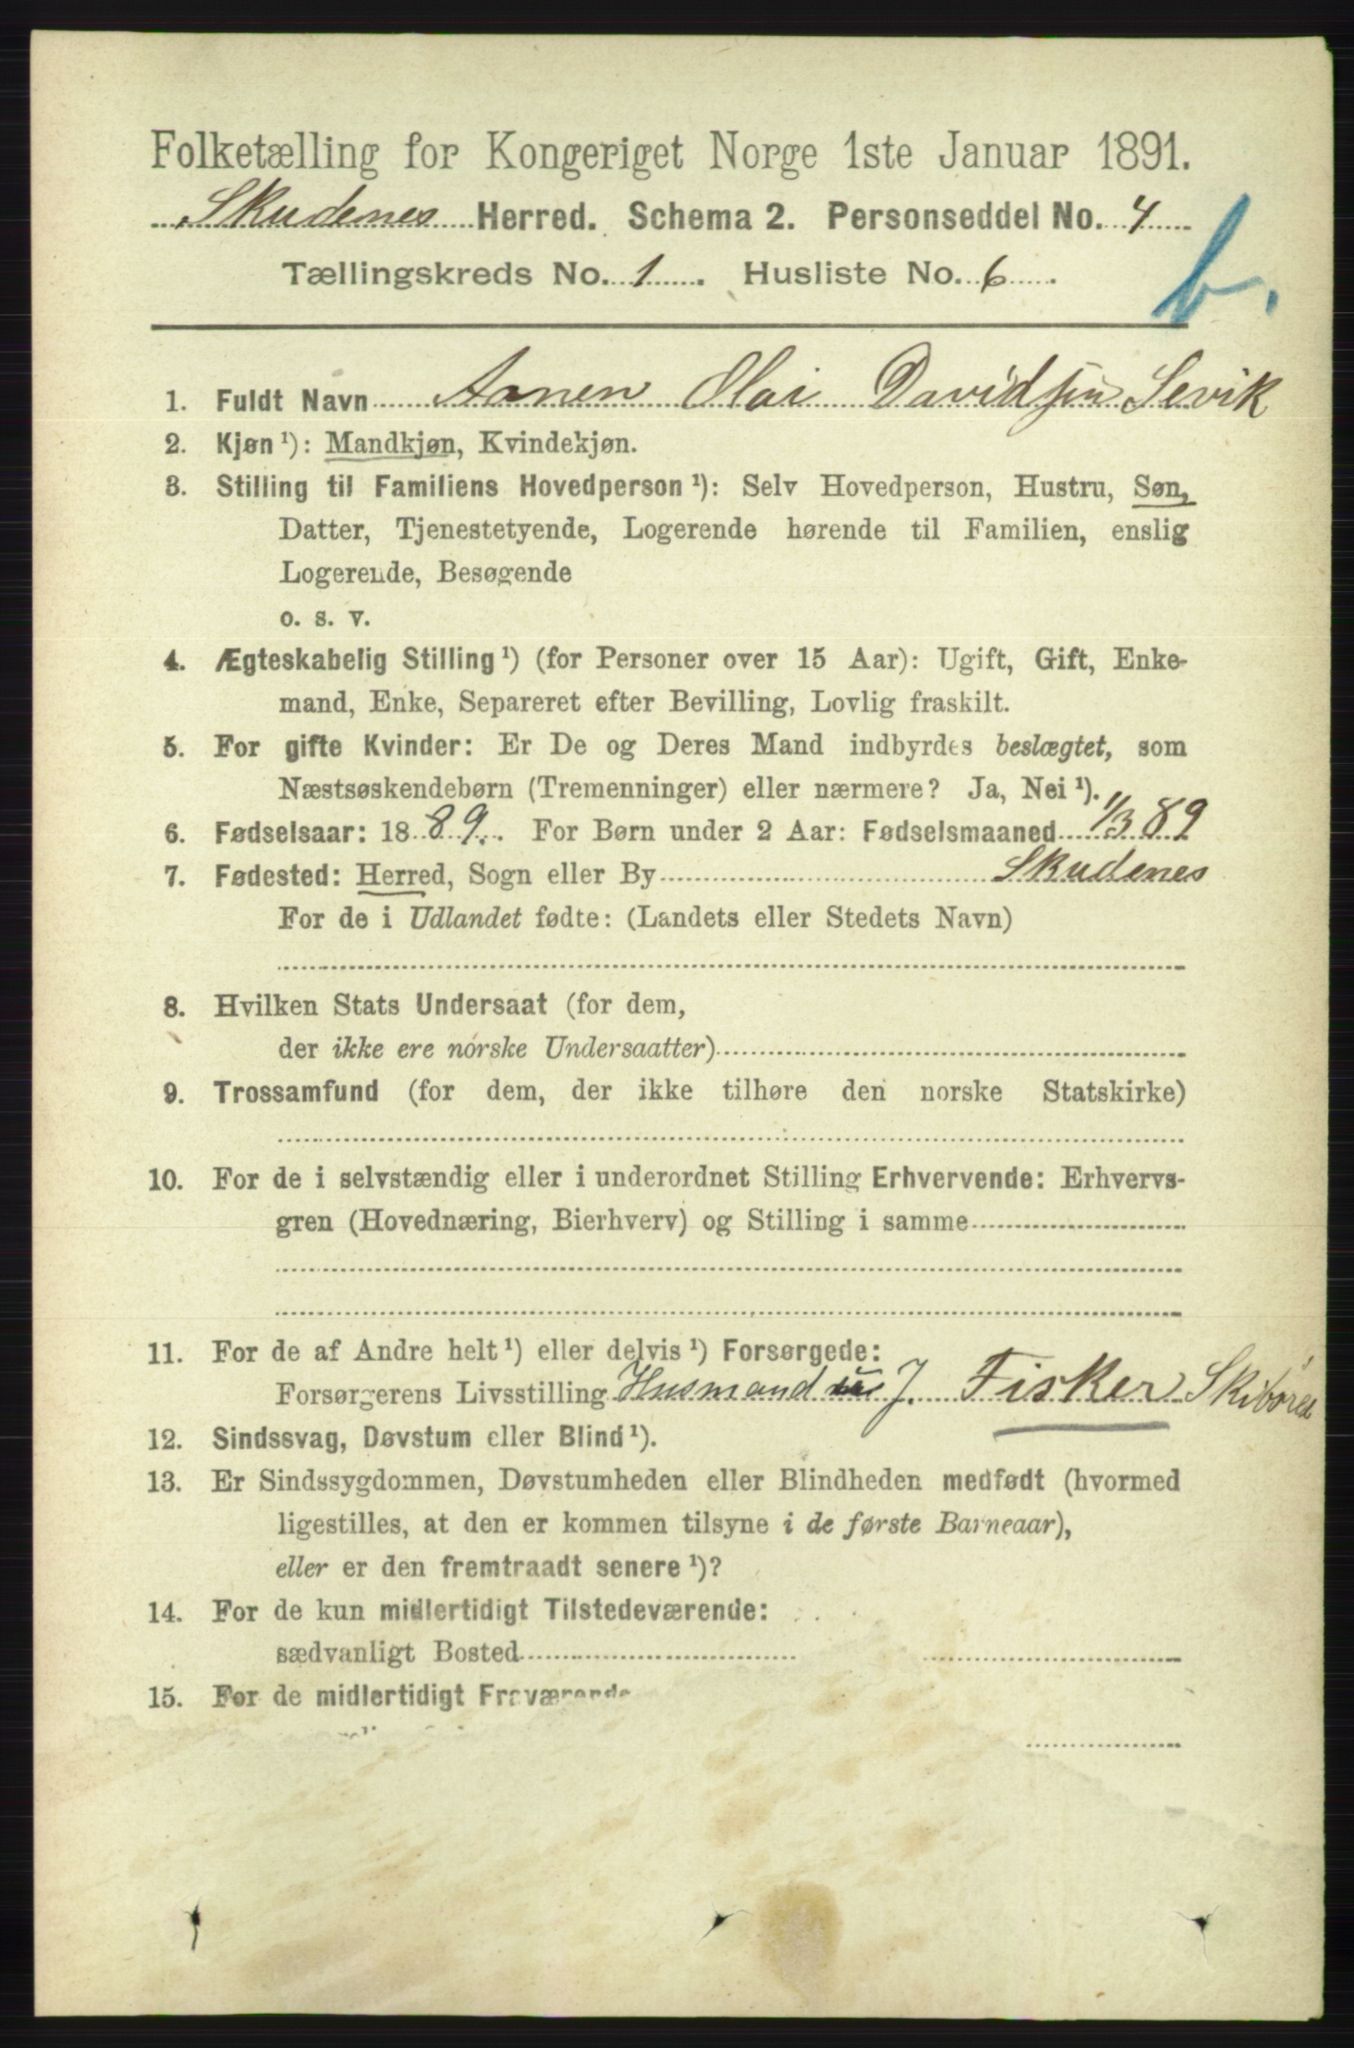 Folketælling for Kongeriget Norge 1ste Januar 1891.
Skudenes Herred. Schema 2. Personseddel No. 4
Tællingskreds No. 1. Husliste No. 6.
b.
1. Fuldt Navn Annen Olai Davidsen Sevik
2. Kjøn ¹): Mandkjøn, Kvindekjøn.
3. Stilling til Familiens Hovedperson ¹): Selv Hovedperson, Hustru, Søn,
Datter, Tjenestetyende, Logerende hørende til Familien, enslig
Logerende, Besøgende
o. s. v.
4. Ægteskabelig Stilling ¹) (for Personer over 15 Aar): Ugift, Gift, Enke-
mand, Enke, Separeret efter Bevilling, Lovlig fraskilt.
5. For gifte Kvinder: Er De og Deres Mand indbyrdes beslægtet, som
Næstsøskendebørn (Tremenninger) eller nærmere? Ja, Nei ¹).
6. Fødselsaar: 1889. For Børn under 2 Aar: Fødselsmaaned 1/3 89
7. Fødested: Herred, Sogn eller By Skudenes
For de i Udlandet fødte: (Landets eller Stedets Navn)
8. Hvilken Stats Undersaat (for dem,
der ikke ere norske Undersaatter)
9. Trossamfund (for dem, der ikke tilhøre den norske Statskirke)
10. For de i selvstændig eller i underordnet Stilling Erhvervende: Erhvervs-
gren (Hovednæring, Bierhverv) og Stilling i samme
11. For de af Andre helt ¹) eller delvis ¹) Forsørgede:
Forsørgerens Livsstilling Husmand u J. Fisker Skibøred
12. Sindssvag, Døvstum eller Blind ¹).
13. Er Sindssygdommen, Døvstumheden eller Blindheden medfødt (hvormed
ligestilles, at den er kommen tilsyne i de første Barneaar),
eller er den fremtraadt senere ¹)?
14. For de kun midlertidigt Tilstedeværende:
sædvanligt Bosted
15. For de midlertidigt Fraværende